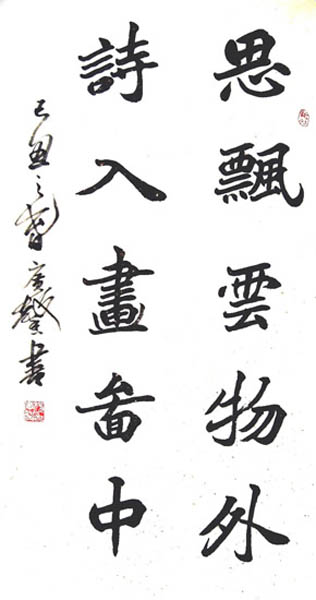 思飄雲物外
詩入畫啚中
己丑之春書